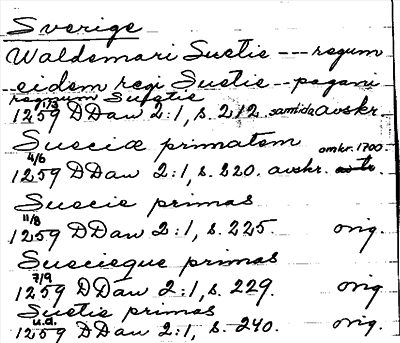 Sverige
Waldemari Suetie --- regum
eidem regi Suetie -- pagani
regnum Suetie
1259 1/3 DDan 2:1, s. 212 samtida avskr.
Sueciæ primatem omkr. 1700
1259 4/6 DDan 2:1, s. 220. avskr.
Suecie primas
1259 11/8 DDan 2:1, s. 225. orig.
Suecieque primas
1259 7/9 DDan 2:1, s. 229. orig
Suetie primas
1259 u.d. DDan 2:1, s. 240. orig.